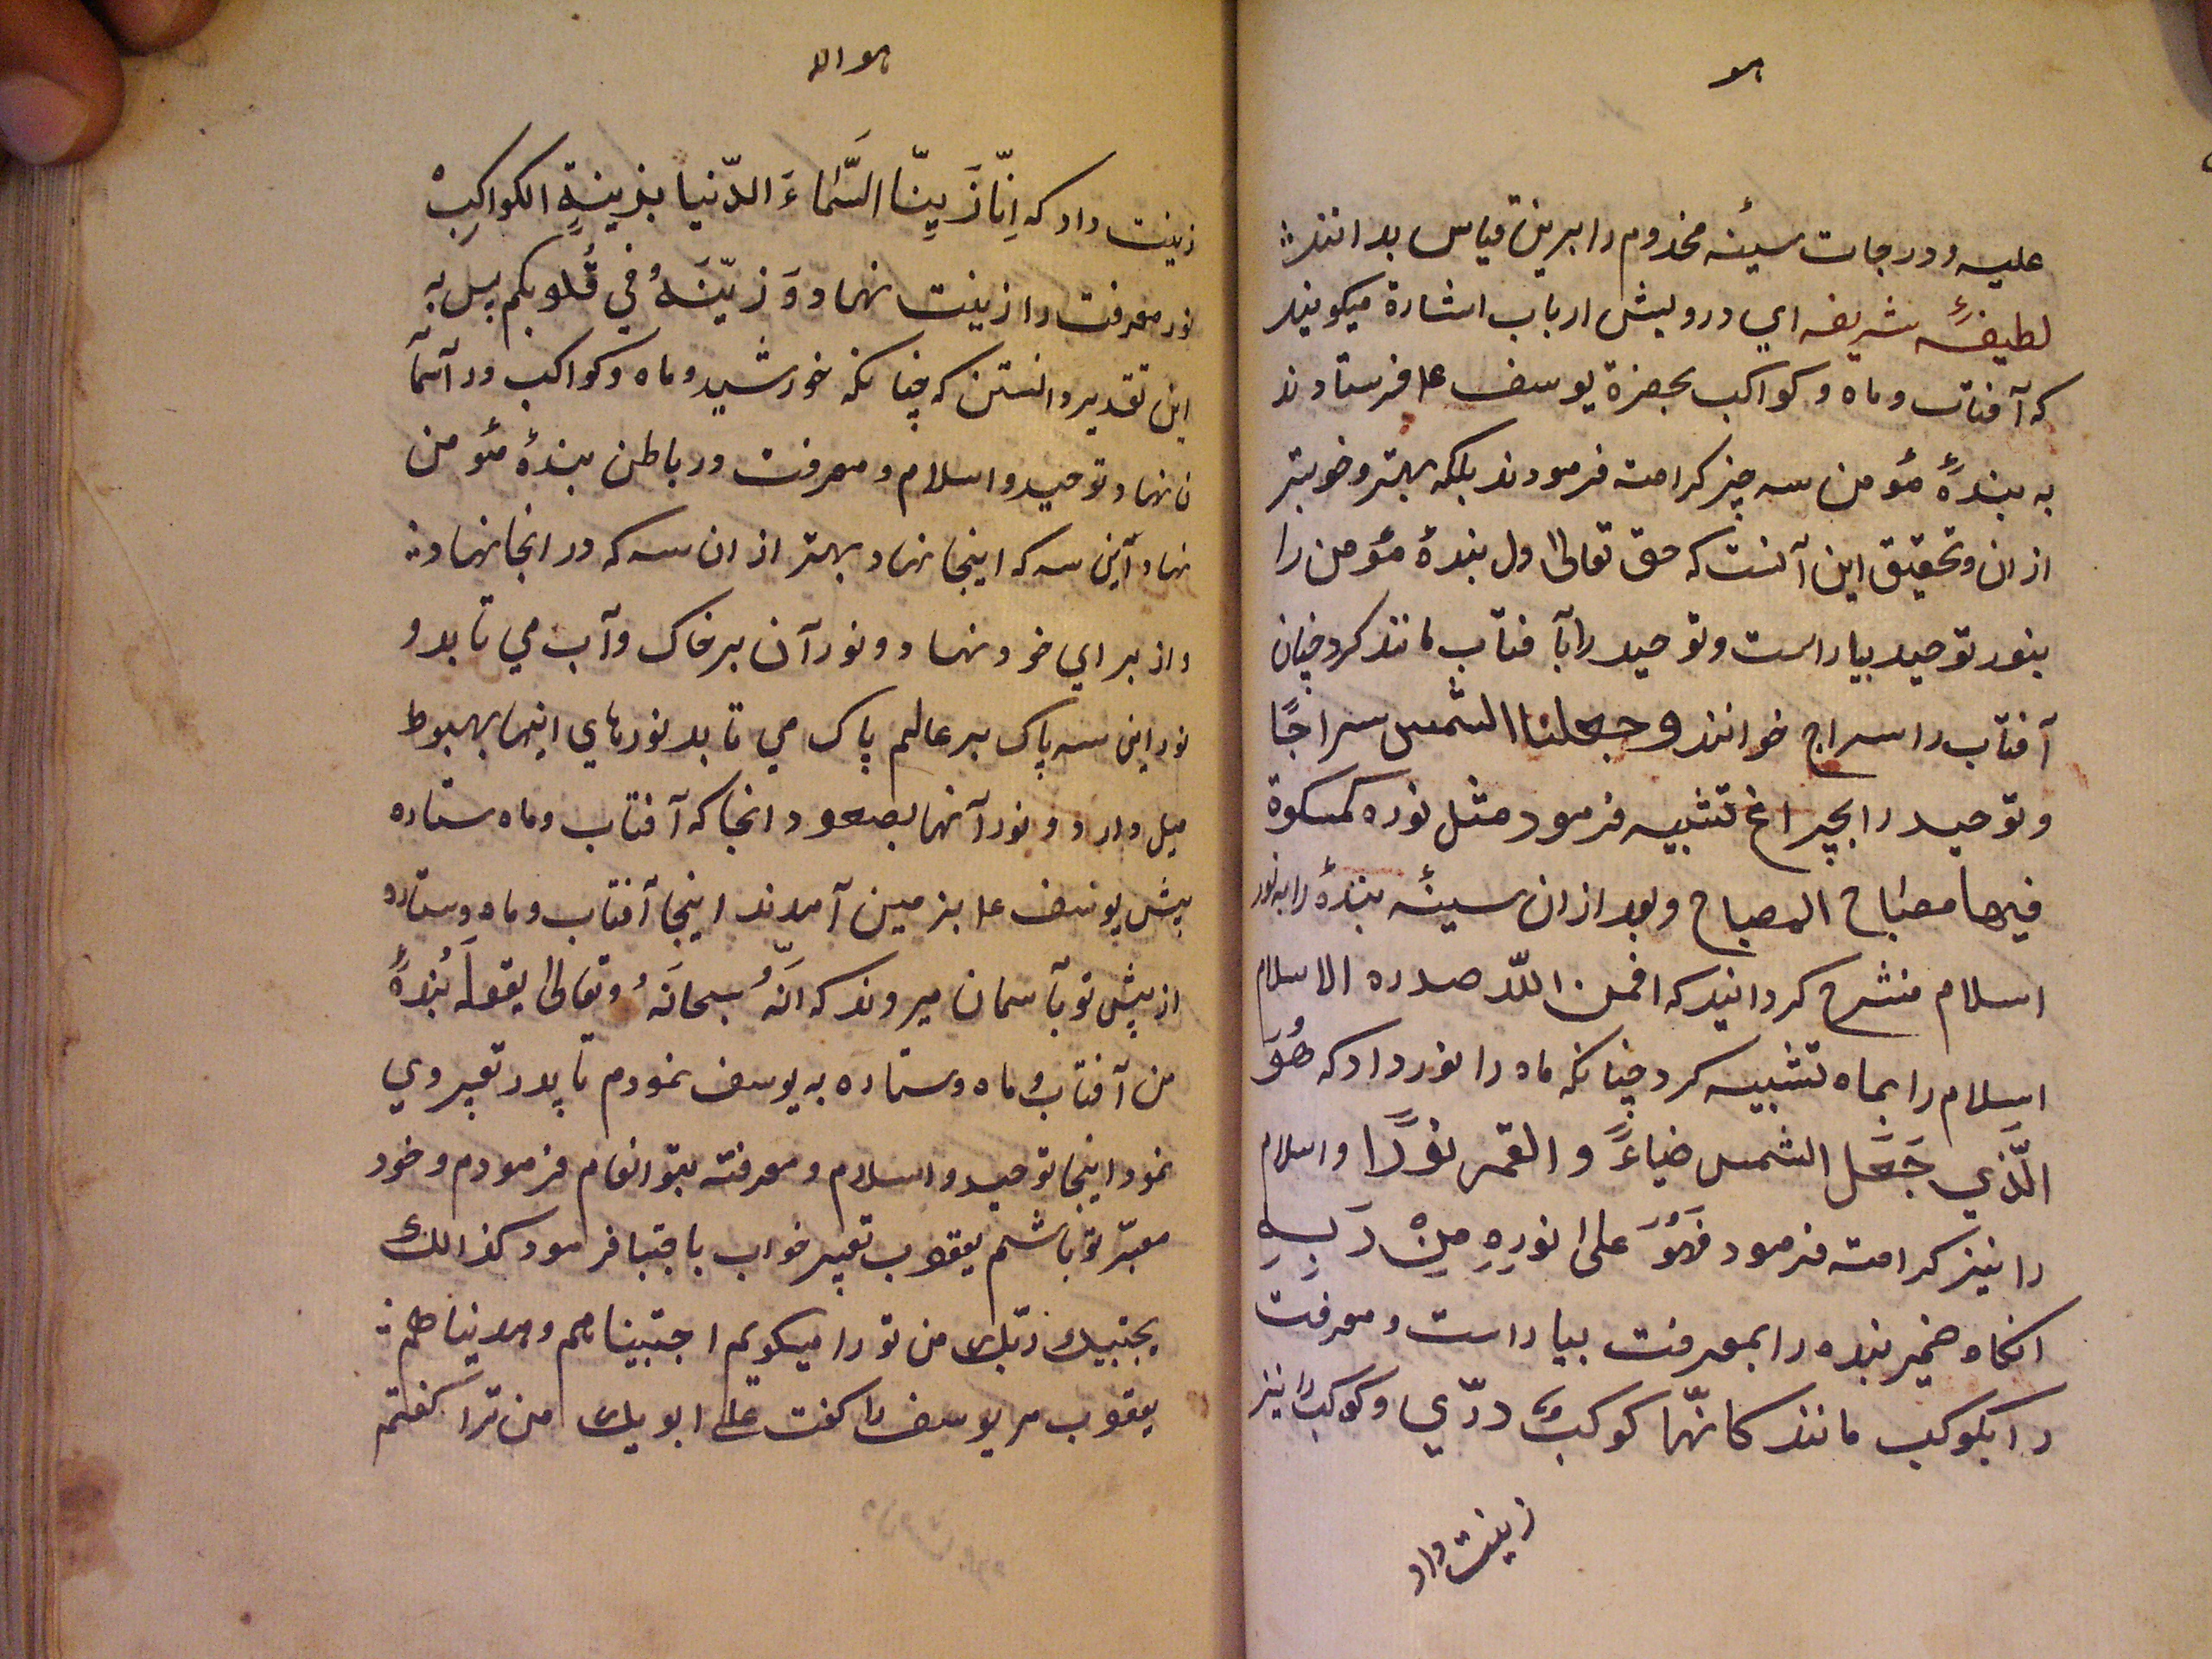 هو
علیه و درجات سیئه مخدوم را برین قیاس بدانند
لطیفهٔ شریفه اي درویش ارباب اشارة میکویند
که آفتاب و ماه و کواکب بحضرة یوسف ع‍ل فرستادند
به بندهٔ مؤمن سه چیز کرامته فرمودند بلکه بهتر و خوبتر
از ان و تحقیق این آنست که حق تعالی اول بندهٔ مؤمن را
بنور توحید بیاراست و توحید را بآفتاب مانند کرد چنان
آفتاب را سراج خوانند وجعلنا الشمس سراجًا
و توحید را بچراغ تشبیه فرمود مثل نوره کمسکوة
فیها مصباح المصباح و بعد از ان سینهٔ بندهٔ را به نور
اسلام منشرح کردانید که افمن اللّه صدره الاسلام
اسلام را بماه تشبیه کرد چنانکه ماه را نور داد که هُوَ
الَّذي جَعَل الشمس ضیاءً و القمر نورًا و اسلام
را نیز کرامته فرمود فَهُوَ علی نورِهِ مِنْ رَبِهِ
انکاه ضمیر بنده را بمعرفت بیاراست و معرفت
را بکوکب مانند کانّها کوکبٌ درّي و کوکب را نیز
زینت داد
هو الله
زینت داد که اِنّا زَیِنّا السَّماءَ الدّنیا بزینةٍ الکواکِبْ
نور معرفت را زینت نهاد وَ زَیّنَهُ في قُلوبکم پس به
این تقدیر دانستن که چنانکه خورشید و ماه و کواکب در آسمآ
ن نهاد توحید و اسلام و معرفت در باطن بندهٔ مؤمن
نهاد آین سه که اینجا نهاد بهتر از ان سه که در انجا نهاد
و از برای خود نهاد و نور آن بر خاک و آب می تابد و
نور این سه پاک بر عالم پاک می تابد نورهای اینها بهبوط
میل دارد و نور آنها بصعود انجا که آفتاب و ماه ستاره
پیش یوسف ع‍ل بزمین آمدند اینجا آفتاب و ماه و ستاره
از پیش تو بآسمان میروند که انَّهُ سبحانَهُ و تعالی یقول بُندهٔ
من آفتاب و ماه و ستاره به یوسف نمودم تا پدر تعبیر وي
نمود اینجا توحید و اسلام و معرفته بتو انعام فرمودم و خود
معبّر تو باشم یعقوب تعبیر خواب باجتبا فرمود کذالك
یجتبیك ربّك من تو را میکویم اجتبیناهم و هدیناهم
یعقوب مر یوسف را کفت علی ابویك من ترا کفتم